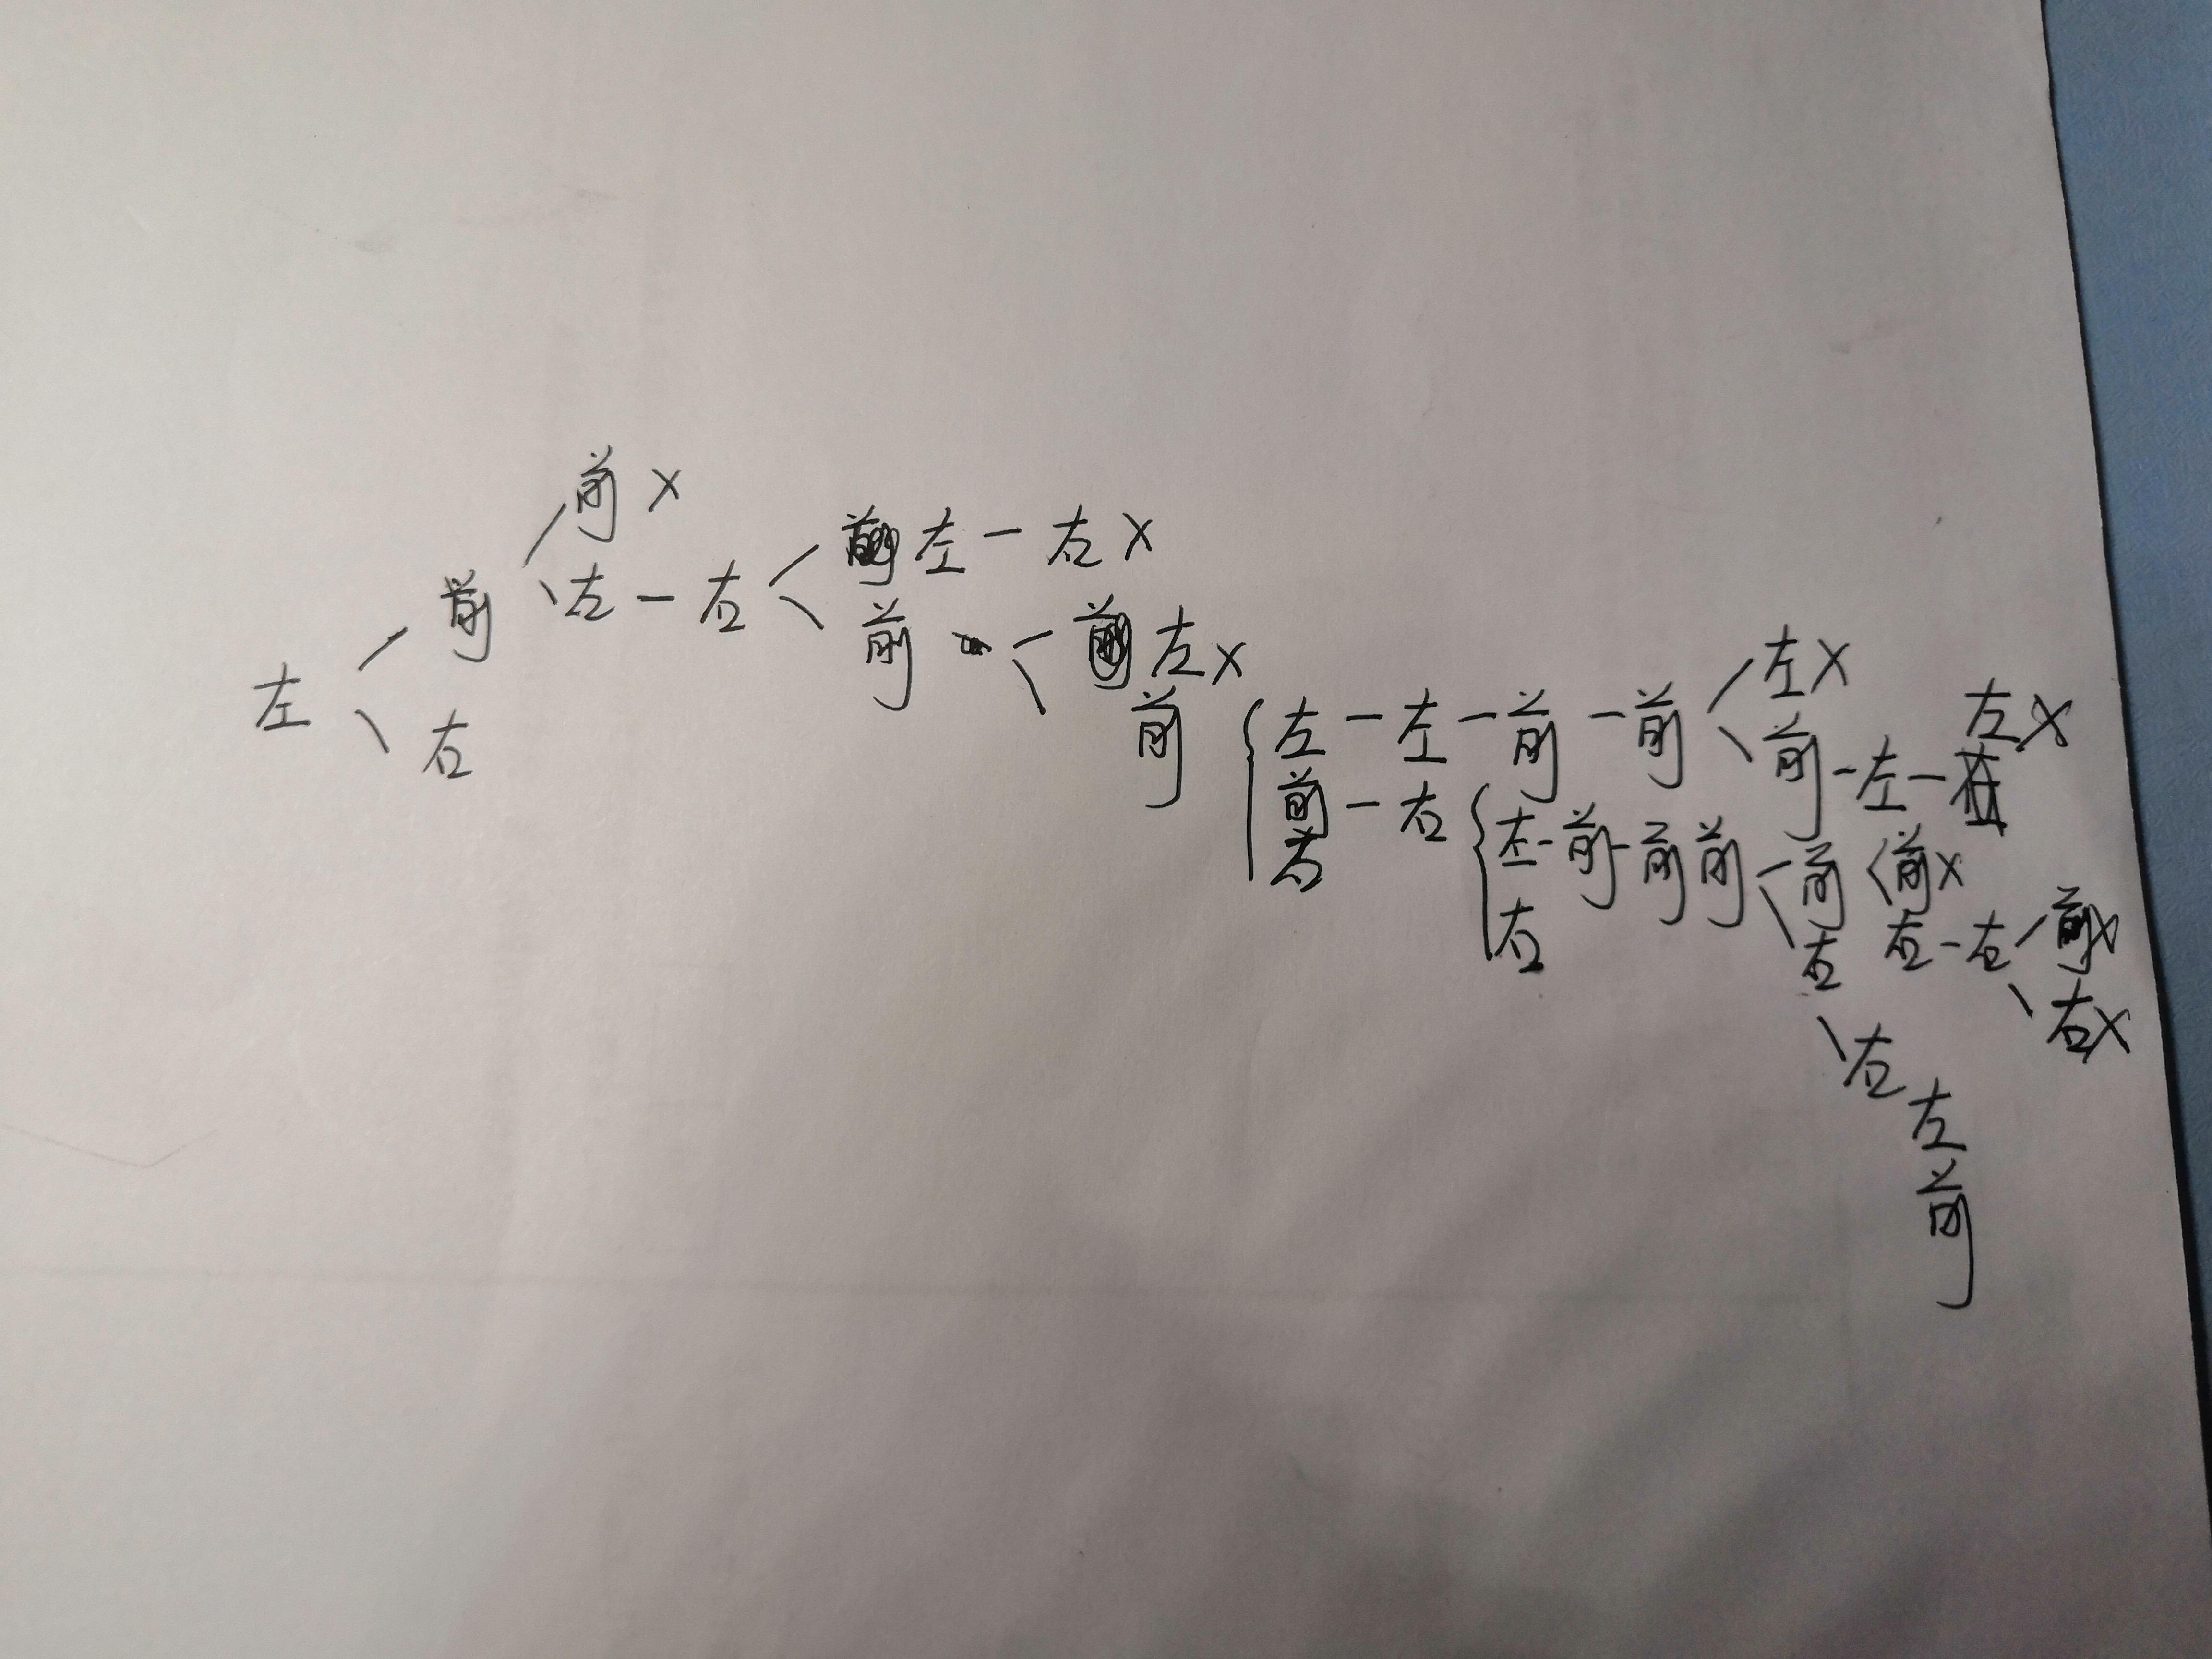 前 x
左 - 右 x
左 - 右
前
左
右
前
左 x
前
左 - 左 - 前 - 前
左 x
前 - 左 -
左 x
前 - 右
右
左 - 前 - 前 前
右
前
前 x
右 - 右
前 x
右 x
右
右
左
前